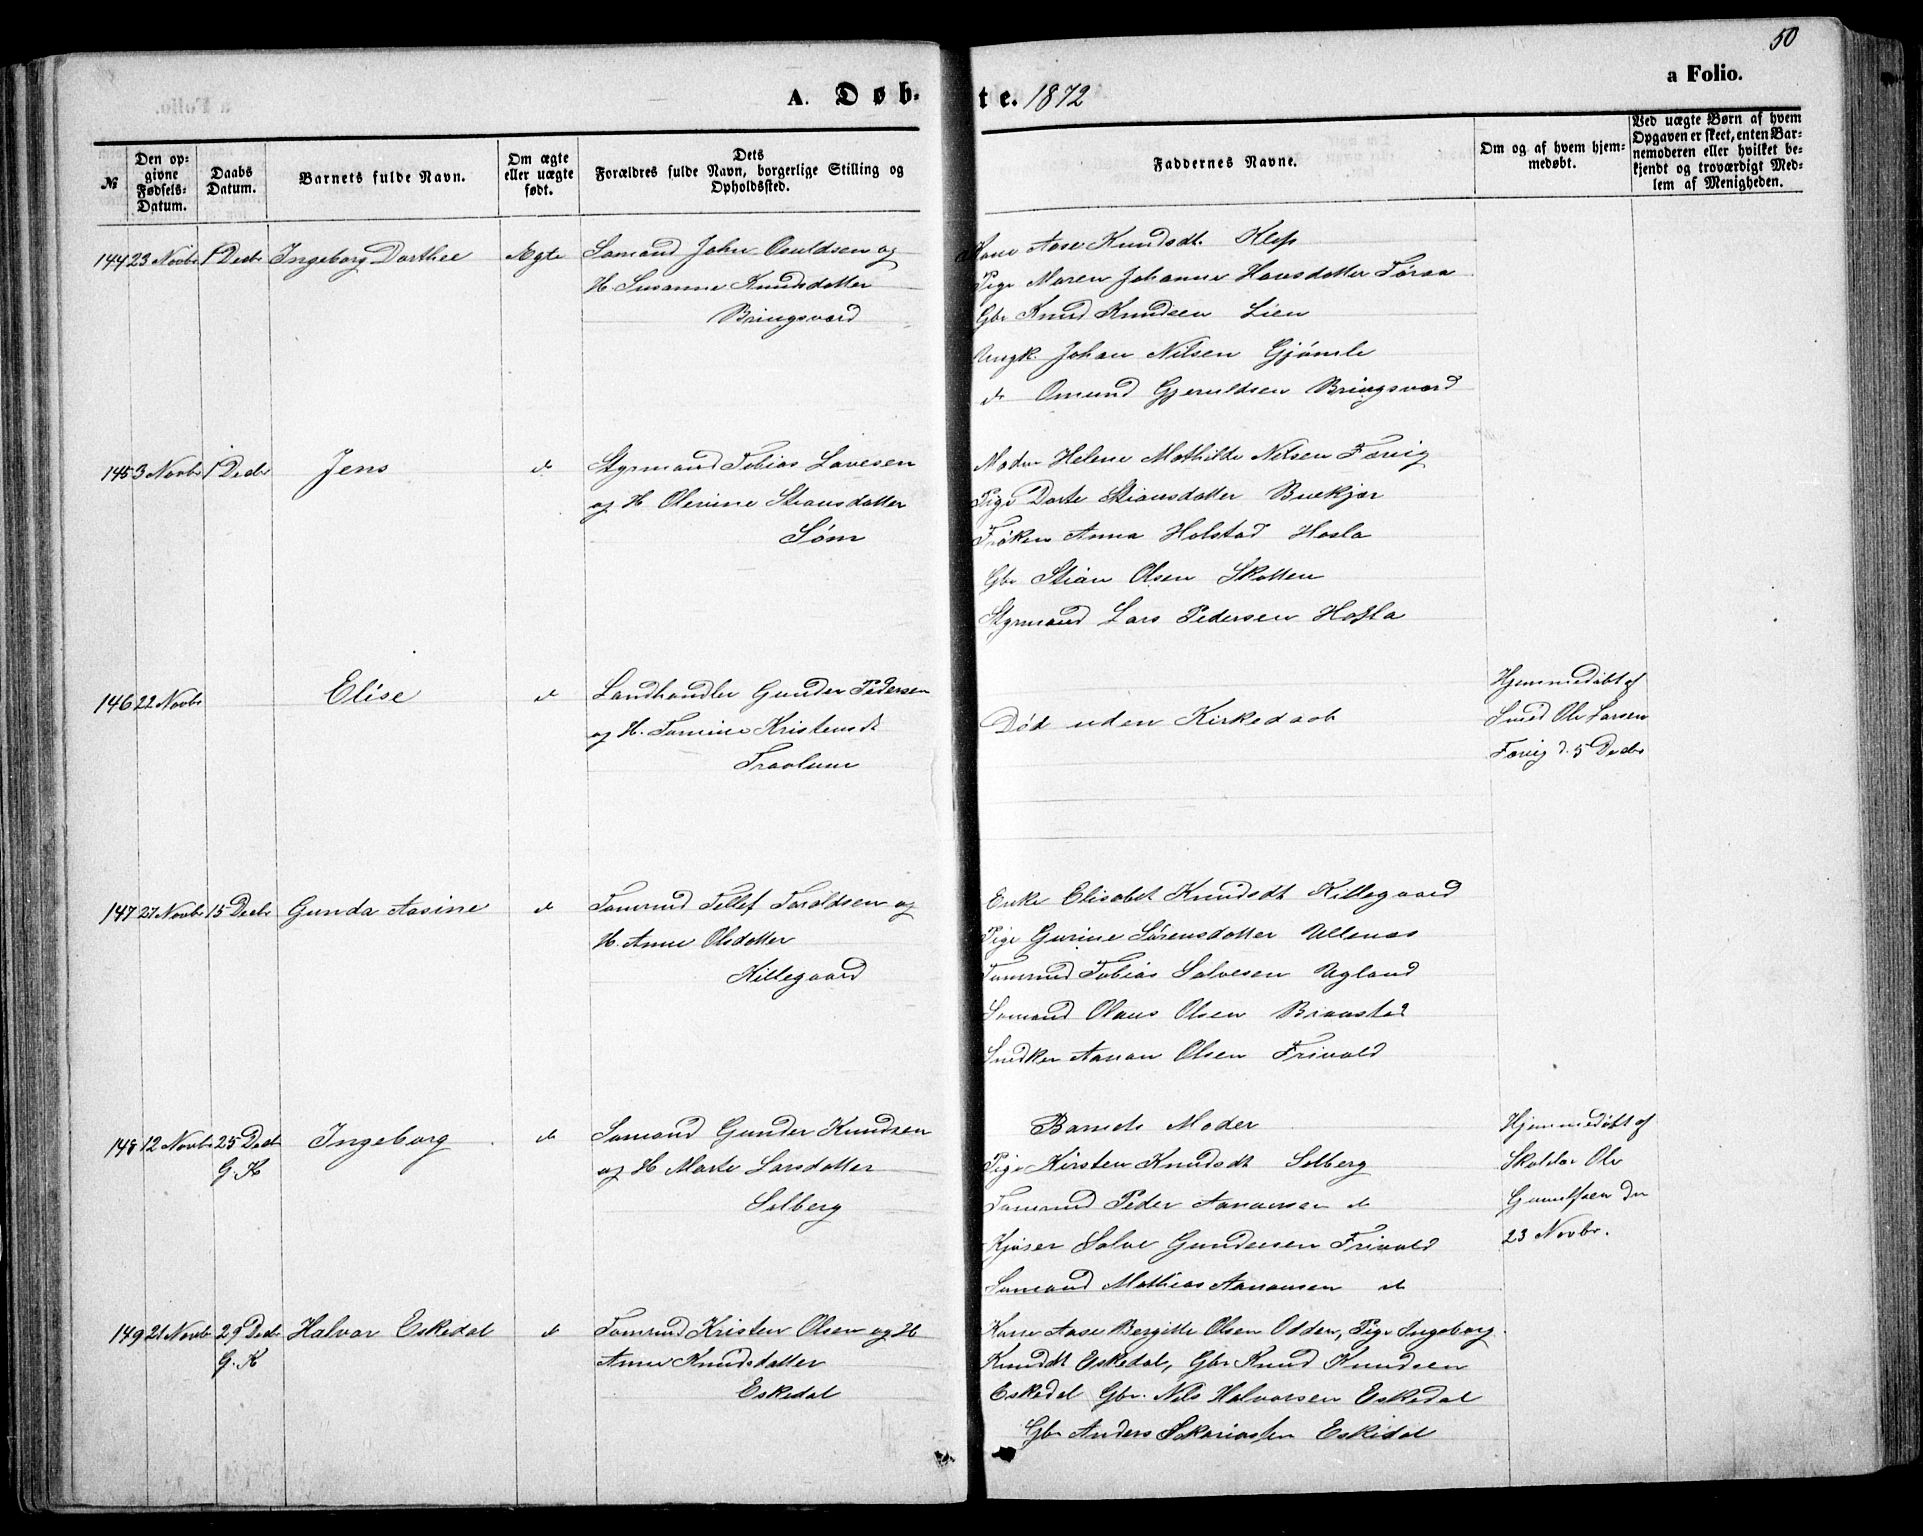 50
a Folio.
A. Døb-
te. 1872
№
Den op-
givne
Fødsels-
Datum.
Daabs
Datum.
Barnets fulde Navn.
Om ægte
eller uægte
født.
Dets
Forældres fulde Navn, borgerlige Stilling og
Opholdssted.
Faddernes Navne.
Om og af hvem hjem-
medøbt.
Ved uægte Børn af hvem
Opgaven er skeet, enten Bar-
nemoderen eller hvilket be-
kjendt og troværdigt Med-
lem af Menigheden.
144 23 Novbr 1 Decbr Ingeborg Dorthee Ægte Sømand John Osuldsen og
H. Susanne Knudsdatter
Bringsværd
Kone Aase Knudsdt. Klep
Pige Maren Johanne HansdatterFøraa
Gbr Knud Knudsen Lien
Ungk. Johan Nilsen Gjømle
do Omund Gjeruldsen Bringsværd
145 3 Novbr 1 Decbr Jens do Styrmand Tobias Lavesen
og H Olevine Stiansdatter
Søm
Madm Helene Mathilde Nilsen Færvig
Pige Dorte Stiansdatter Buekjær
Frøken Anna Holstad Hasla
Gbr Stian Olsen Skotten
Styrmand Lars Pedersen Hasla
146 22 Novbr Elise do Landhandler Gunder Pedersen
og H. Tomine Kristensdt
Død uden Kirkedaab
Hjemmedøbt af
Smed Ole Larsen
Færvig d. 5 Decbr
147 27 Novbr 15 Decbr Gunda Aasine do Tømmd Tellef Taraldsen og
H. Anne Olsdatter
Killegaard
Enke Elisabet Knudsdt Killegaard
Pige Gurine Sørensdatter Ullenæs
Tømmd Tobias Salvesen Ugland
Sømand Olaus Olsen Braastad
Snedker Aanon Olsen Frivold
148 12 Novbr 25 Decbr Ingeborg do Sømand Gunder Knudsen
G. K og H Marte Larsdatter
Solberg
Barnets Moder
Pige Kirsten Knudsdt Solberg
Tømmd Peder Aanonsen do
Kjøser Salve Gundersen Frivold
Sømand Mathias Aanonsen do
Hjemmedøbt af
Skolelær Ole
Gunulfsen den
23 Novbr.
149 21 Novbr 29 Decbr Halvor Eskedal do Tømmd Kristen Olsen og H
G. K Anne Knudsdatter
Eskedal
Kone Aase Bergitte Olsen Odden, Pige Ingeborg
Knudsdt Eskedal, Gbr Knud Knudsen
Eskedal Gbr. Nils Halvorsen Eskedal
Gbr Anders Skariassen Eskedal